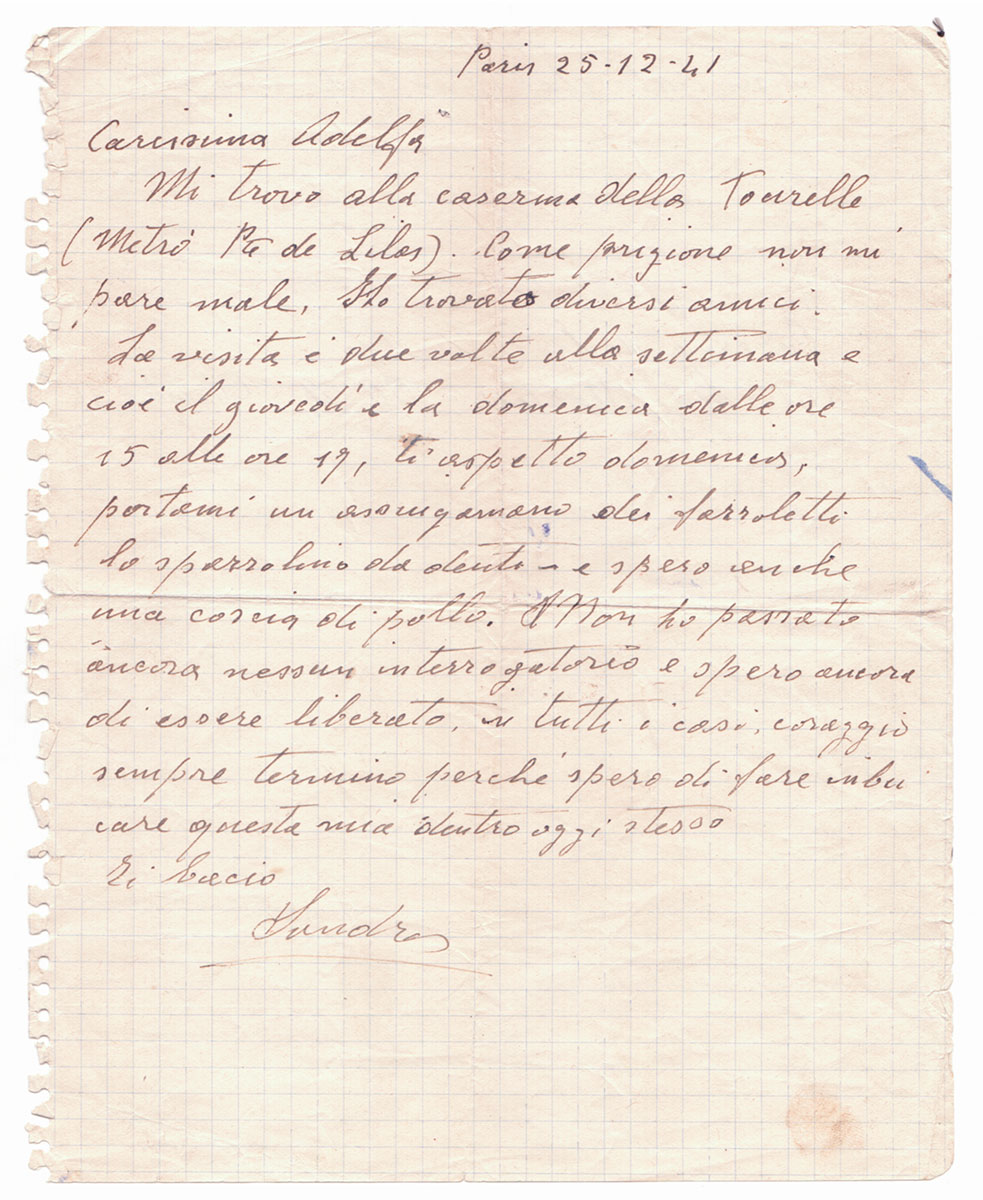 Paris 25-12-41
Carissima Adelfa
Mi trovo alla caserma della Tourelle
(Metrò Pte de Lilas). Come prigione non mi
pare male, Ho trovato diversi amici.
La visita è due volte alla settimana e
cioé il giovedí e la domenica dalle ore
15 alle ore 17, ti aspetto domenica,
portami un asciugamano dei fazzoletti
lo spazzolino da denti - e spero anche
una coscia di pollo. Non ho passato
ancora nessun interrogatorio e spero ancora
di essere liberato, in tutti i casi, coraggio
sempre termino perché spero di fare inbu
care questa mia dentro oggi stesso
Ti bacio
Sandro